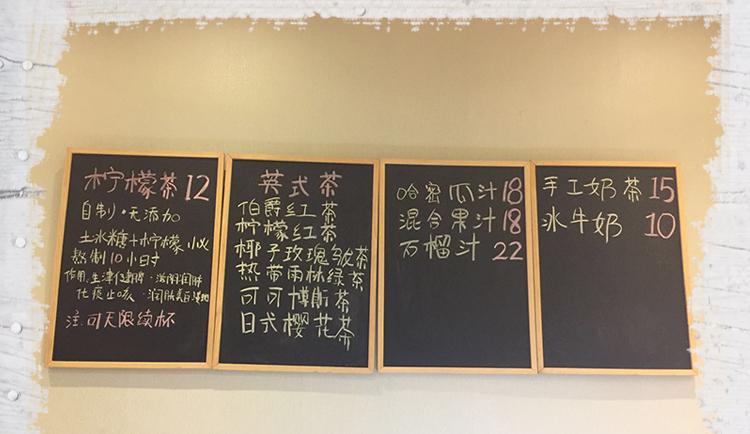 柠檬茶 12
自制·无添加
土冰糖+柠檬 小火
熬制10小时
作用:生津健脾·滋阴润肺
化痰止咳·润肤美白
注:可无限续杯
英式茶
伯爵红茶
柠檬红茶
椰子玫瑰绿茶
热带雨林绿茶
可可博斯茶
日式樱花茶
哈密瓜汁 18
混合果汁 18
石榴汁 22
手工奶茶 15
水牛奶 10